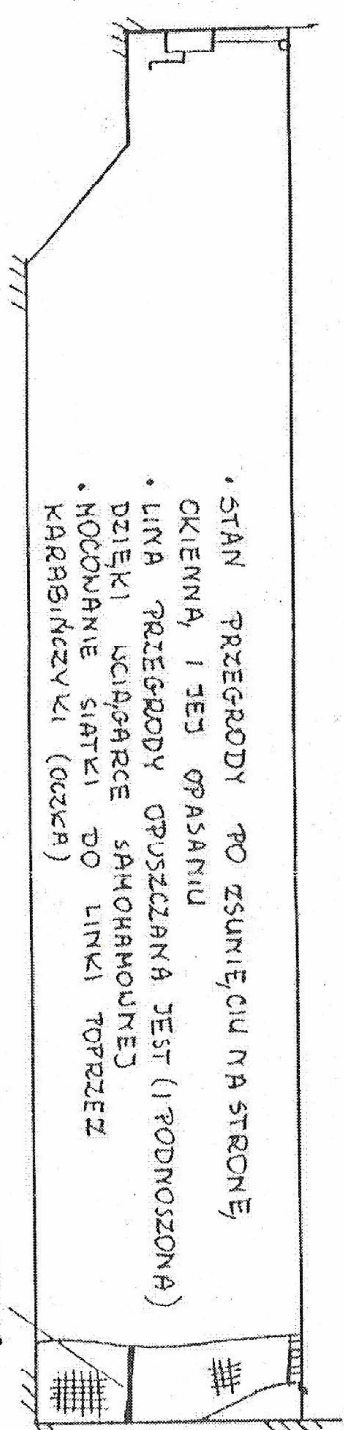 • STAN PRZEGRODY PO ZSUNIĘCIU NA STRONĘ
OKIENNĄ I JEJ OPASANIU
• LINA PRZEGRODY OPUSZCZANA JEST (I PODNOSZONA)
DZIĘKI WCIĄGARCE SAMOHAMOWNEJ
• MOCOWANIE SIATKI DO LINKI POPRZEZ
KARABIŃCZYKI (OCZKA)